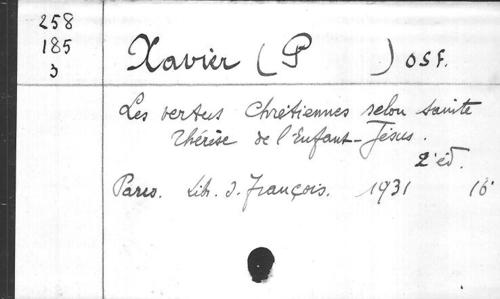 258
185
3
Xavier (P ) OSF.
Les vertus Chrétiennes selon sainte
Thérèse de l'Enfant-Jésus.
2e éd.
Paris. Lib. S. François. 1931 16°